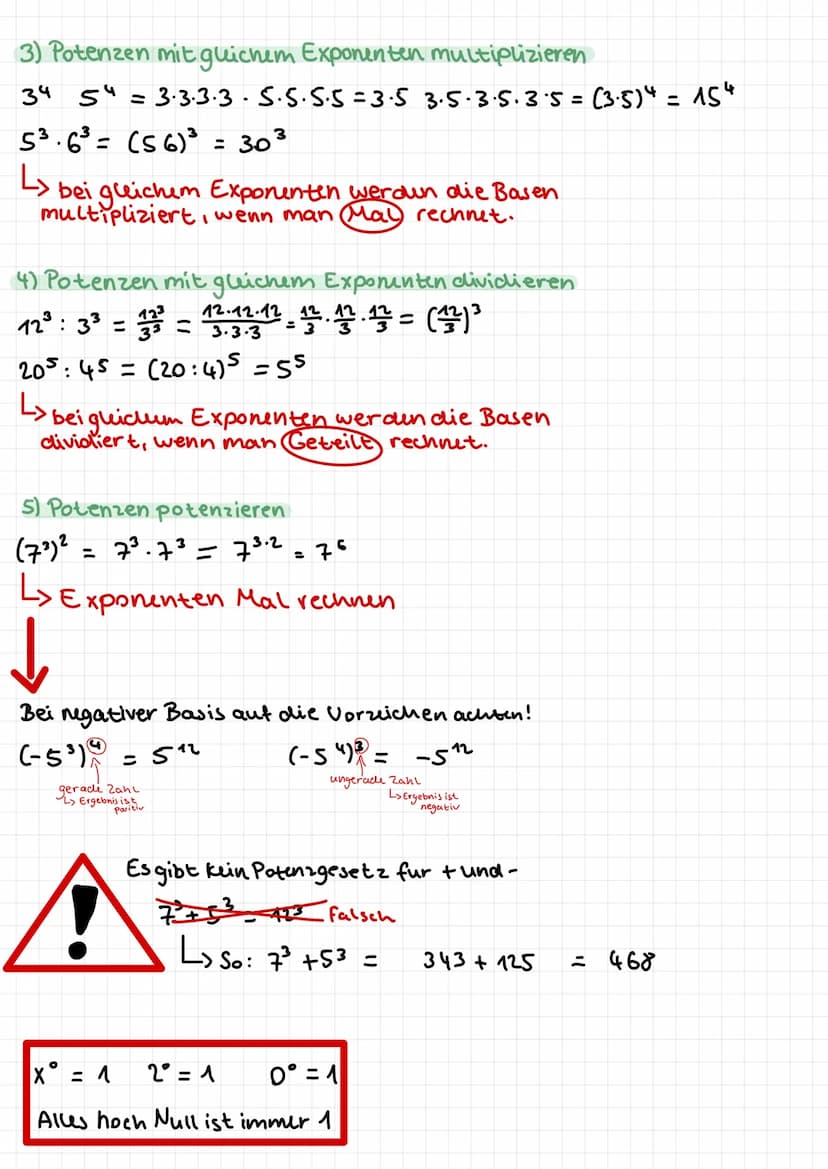 3) Potenzen mit gleichem Exponenten multiplizieren
3⁴ 5⁴ = 3·3·3·3 · 5·5·5·5 = 3·5 3·5·3·5·3·5 = (3·5)⁴ = 15⁴
5³·6³ = (5 6)³ = 30³
↳ bei gleichem Exponenten werden die Basen
multipliziert, wenn man Mal rechnet.
4) Potenzen mit gleichem Exponenten dividieren
12³ : 3³ = 12³/3³ = 12·12·12/3·3·3 = 12/3 · 12/3 · 12/3 = (12/3)³
20⁵ : 4⁵ = (20:4)⁵ = 5⁵
↳ bei gleichem Exponenten werden die Basen
dividiert, wenn man Geteilt rechnet.
5) Potenzen potenzieren
(7³)² = 7³·7³ = 7³·² = 7⁶
↳ Exponenten Mal rechnen
Bei negativer Basis auf die Vorzeichen achten!
(-5³)⁴ = 5¹² (-5⁴)³ = -5¹²
gerade Zahl
↳ Ergebnis ist
positiv
ungerade Zahl
↳ Ergebnis ist
negativ
Es gibt kein Potenzgesetz für + und -
7³ + 5³ = 12³ Falsch
↳ So: 7³ + 5³ = 343 + 125 = 468
x⁰ = 1 2⁰ = 1 0⁰ = 1
Alles hoch Null ist immer 1